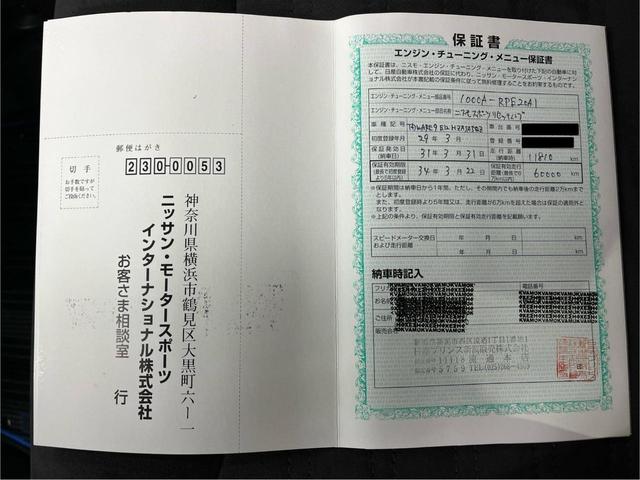 郵便はがき
切手
お手数ですが
切手を貼って
ご投函ください。
230-0053
神奈川県横浜市鶴見区大黒町六ー一
ニッサン・モータースポーツ
インターナショナル株式会社
お客さま相談室 行
保証書
エンジン・チューニング・メニュー保証書
本保証書は、ニスモ・エンジン・チューニング・メニューを取り付けた下記の自動車に対
して、日産自動車株式会社の保証に代わり、ニッサン・モータースポーツ・インターナシ
ョナル株式会社が本書記載の保証条件に従って無料修理することをお約束するものです。
エンジン・チューニング・メニュー部品番号 1000A-RPE20A1
エンジン・チューニング・メニュー部品名称
車種記号
車台番号
初度登録年月 29年 3月
登録番号
保証発効日
(納車日) 31年 3月 31日
走行距離
(納車時) 11810 km
保証有効期限 34年 3月 22日
保証有効走行距離 60000 km
※保証期間は納車日から1年間。ただし、その期間内でも納車後の走行距離2万kmまで
とします。
また、初度登録時より5年間又は、走行距離が6万kmを超えた場合は保証の適用外と
なります。
※上記の条件より、保証有効期限と保証有効走行距離を記載願います。
スピードメーター交換日
および走行距離 年 月 日 km
年 月 日 km
納車時記入
フリガ
電話番号
お名前
ご住所
販売会社